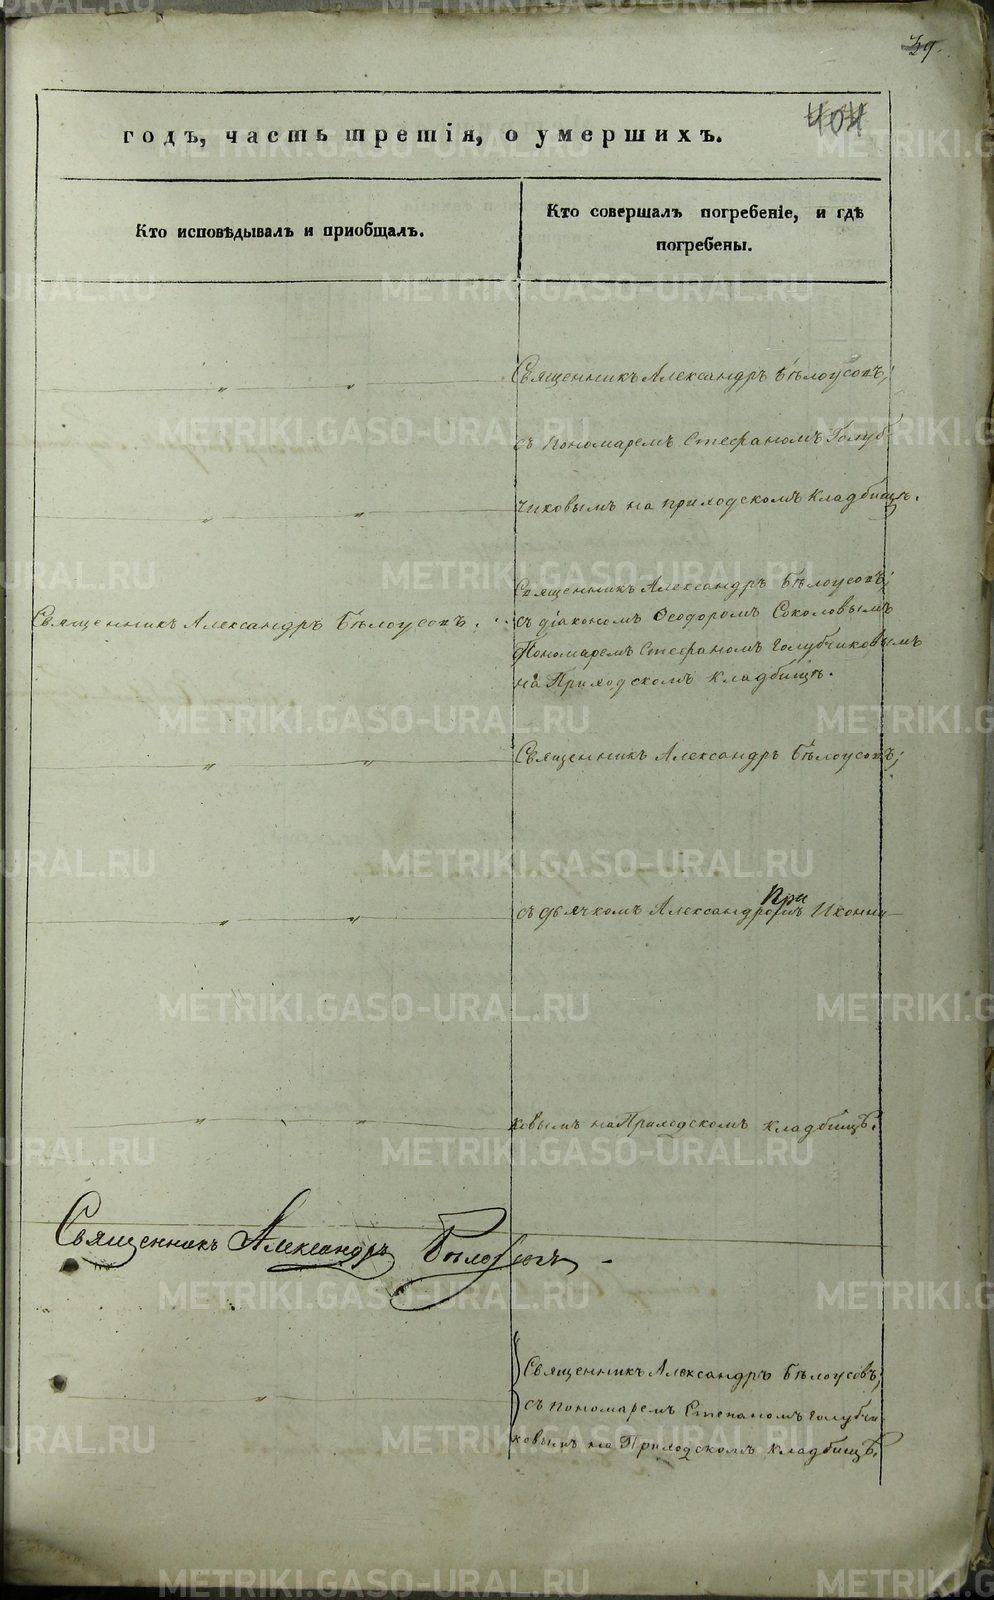 39.
404
годъ, часть третія, о умершихъ.
Кто исповѣдывалъ и приобщалъ.
Кто совершалъ погребеніе, и гдѣ
погребены.
Священникъ Александръ Бѣлоусовъ;
съ пономаремъ Стефаномъ Голуб-
чиковымъ на приходскомъ кладбищѣ.
Священникъ Александръ Бѣлоусовъ.
Священникъ Александръ Бѣлоусовъ;
съ діакономъ Ѳеодоромъ Соколовымъ
Пономаремъ Стефаномъ Голубчиковымъ
на Приходскомъ кладбищѣ.
Священникъ Александръ Бѣлоусовъ;
При
съ дьячкомъ Александромъ Иконни-
ковымъ на Приходскомъ кладбищѣ.
Священникъ Александръ Бѣлоусовъ
Священникъ Александръ Бѣлоусовъ;
съ пономаремъ Степаномъ Голубчи-
ковымъ на Приходскомъ кладбищѣ.
METRIKI.GASO-URAL.RU